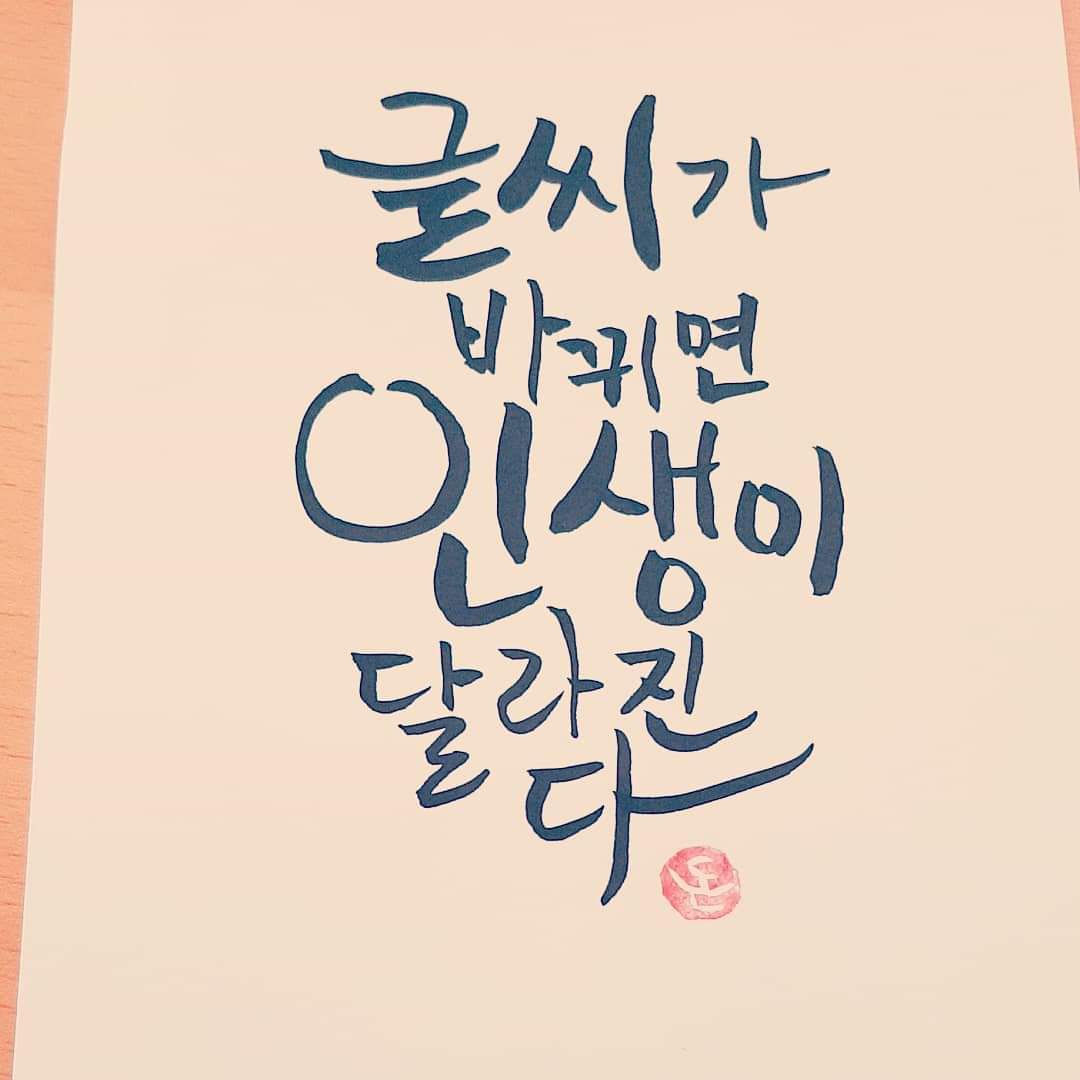 글씨가
바뀌면
인생이
달라진
다
온